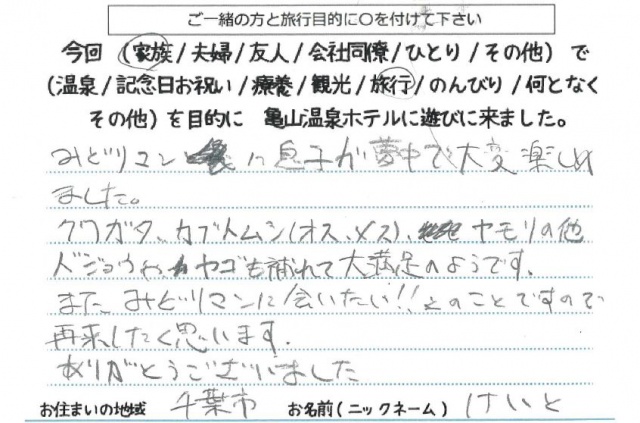 ご一緒の方と旅行目的に○を付けて下さい
今回（家族/夫婦/友人/会社同僚/ひとり/その他）で
（温泉/記念日お祝い/療養/観光/旅行/のんびり/何となく
その他）を目的に 亀山温泉ホテルに遊びに来ました。
みどりマン に息子が夢中で大変楽しめ
ました。
クワガタ、カブトムシ(オス、メス)、ヤモリの他
ドジョウやヤゴも捕れて大満足のようです。
また、みどりマンに会いたい!!とのことですので
再来したく思います。
ありがとうございました
お住まいの地域 千葉市 お名前（ニックネーム） けいと